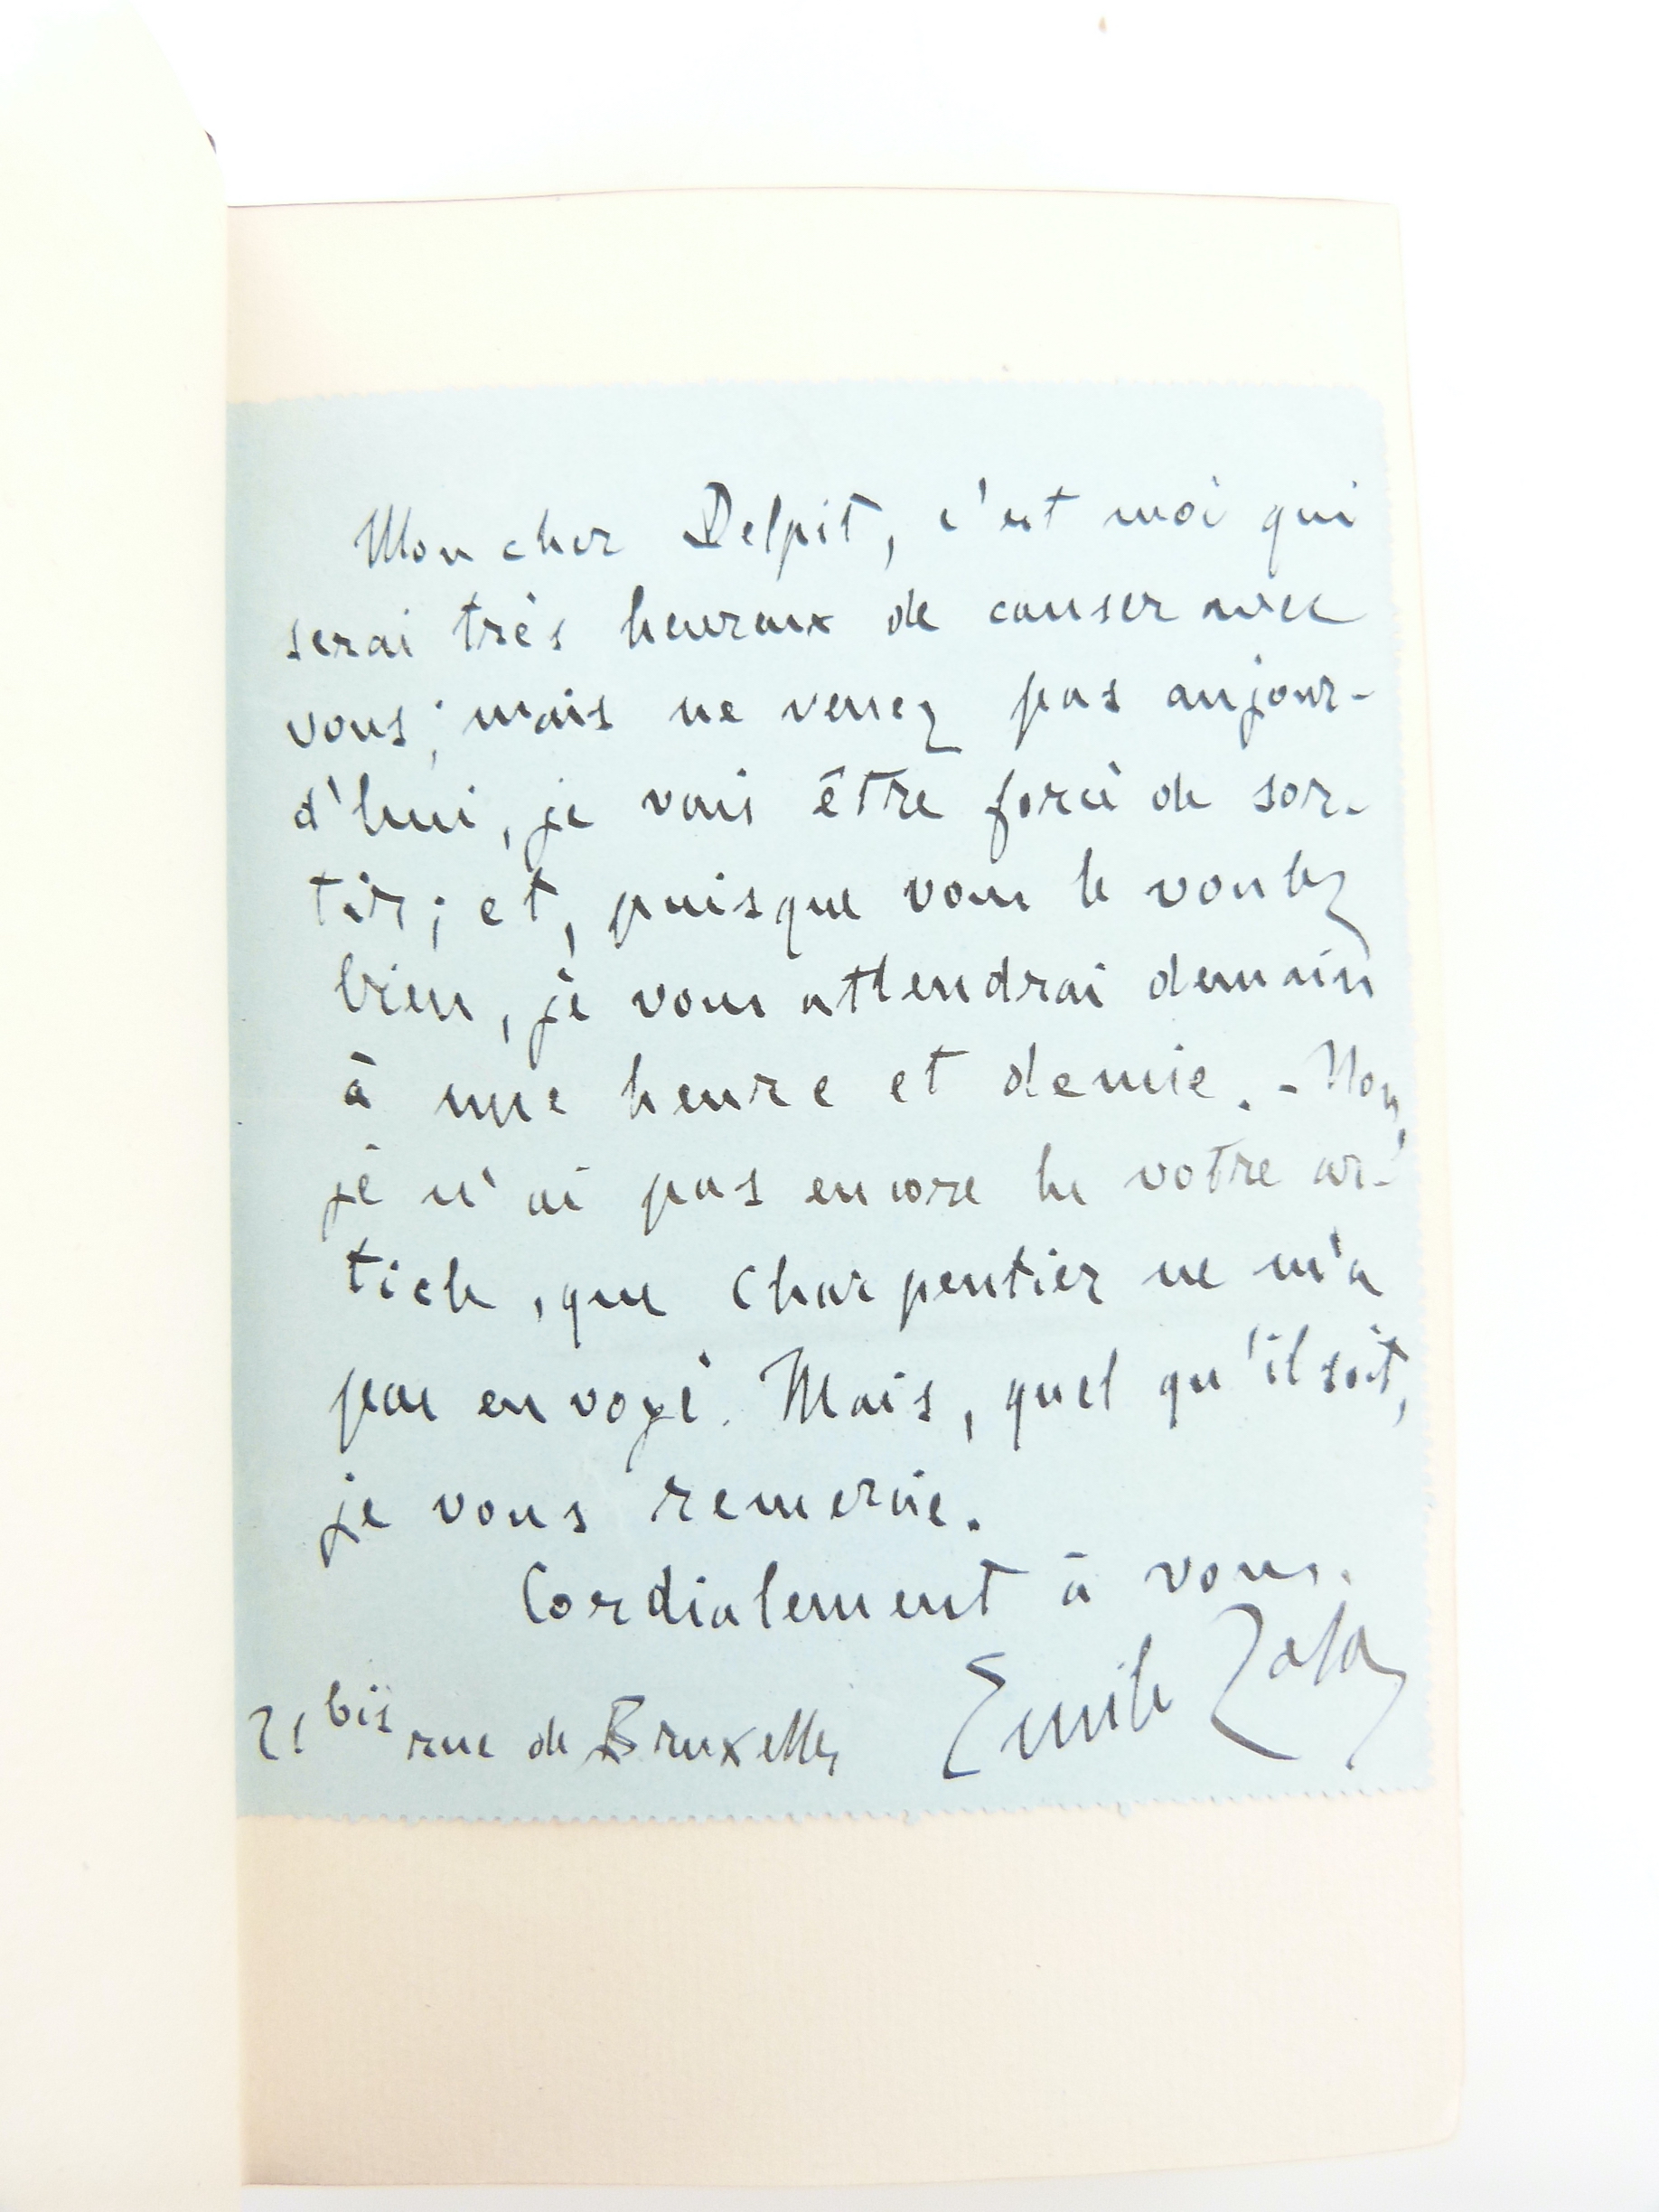 Mon cher Delpit, c'est moi qui
serai très heureux de causer avec
vous; mais ne venez pas aujour-
d'hui, je vais être forcé de sor-
tir; et, puisque vous le voulez
bien, je vous attendrai demain
à une heure et demie. - Non,
je n'ai pas encore lu votre ar-
ticle, que Charpentier ne m'a
pas envoyé. Mais, quel qu'il soit,
je vous remercie.
Cordialement à vous.
Emile Zola
21 bis rue de Bruxelles